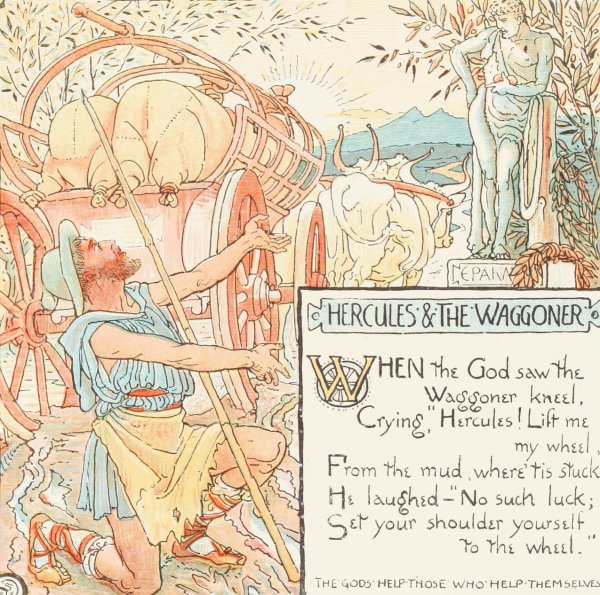 ΕΡΑΚΛ
HERCULES & THE WAGGONER
WHEN the God saw the
Waggoner kneel,
Crying, "Hercules! Lift me
my wheel,
From the mud, where 'tis stuck
He laughed—"No such luck;
Set your shoulder yourself
to the wheel."
THE GODS HELP THOSE WHO HELP THEMSELVES